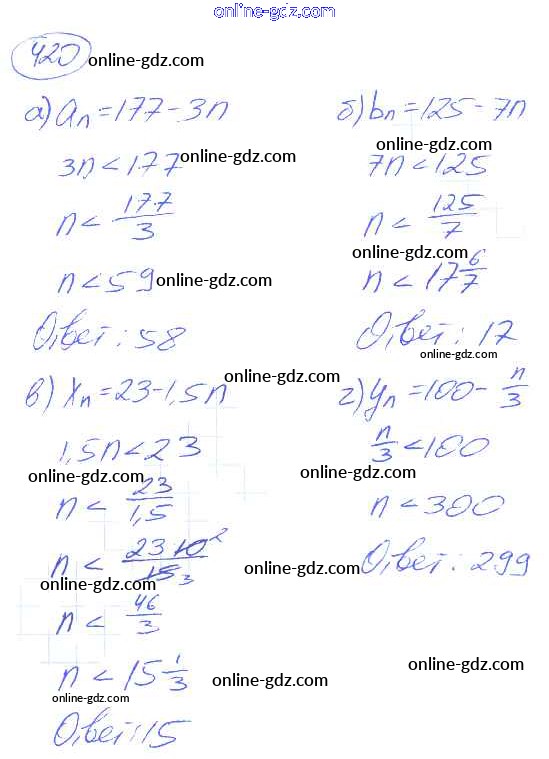 online-gdz.com
420 online-gdz.com
а) aₙ = 177 - 3n
3n < 177 online-gdz.com
n < 177/3
n < 59 online-gdz.com
Ответ: 58
б) bₙ = 125 - 7n
online-gdz.com
7n < 125
n < 125/7
online-gdz.com
n < 17 6/7
Ответ: 17
online-gdz.com
online-gdz.com
в) xₙ = 23 - 1,5n
1,5n < 23
online-gdz.com
n < 23/1,5
n < 23·10 2/15 3
online-gdz.com
n < 46/3
n < 15 1/3 online-gdz.com
online-gdz.com
Ответ: 15
г) yₙ = 100 - n/3
n/3 < 100
online-gdz.com
n < 300
online-gdz.com Ответ: 299
online-gdz.com